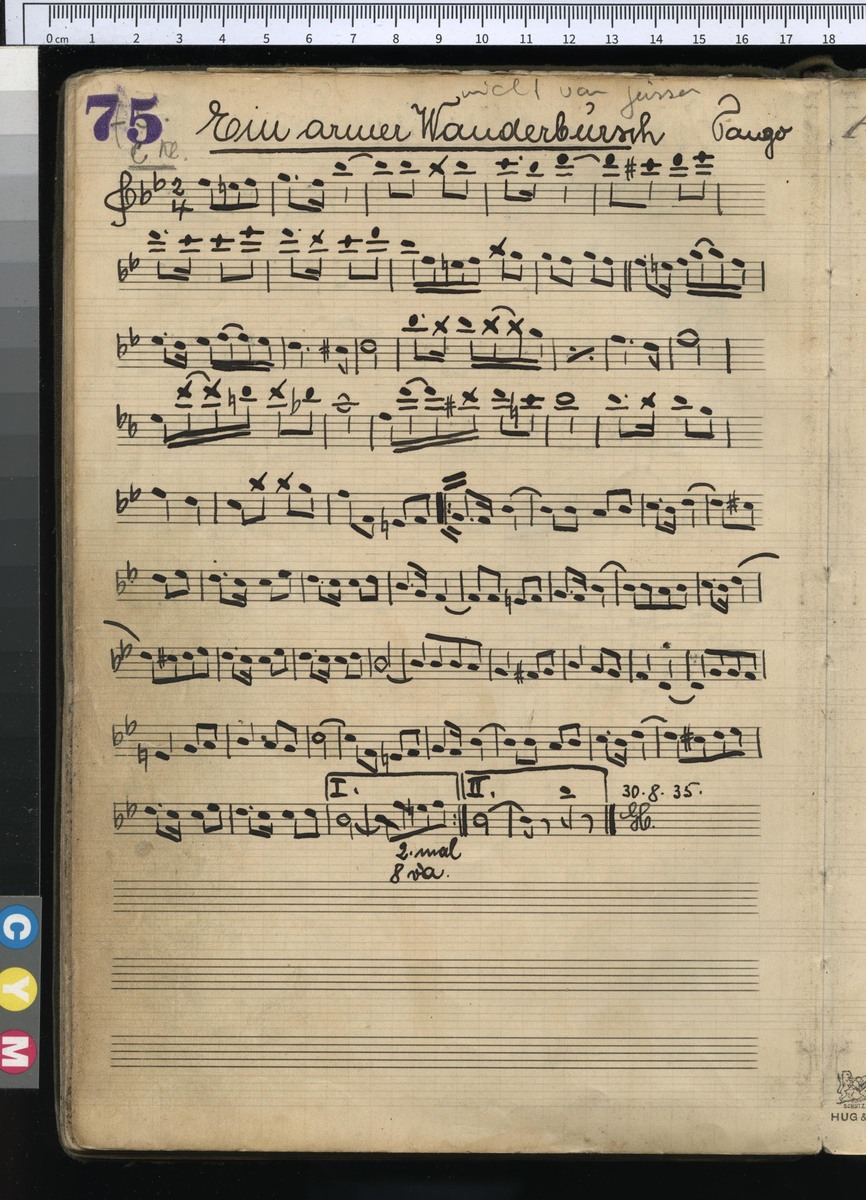 0 cm 1 2 3 4 5 6 7 8 9 10 11 12 13 14 15 16 17 18
nicht von
75 Ein armer Wanderbursch Tango
2
4
I. II. 30. 8. 35.
2. mal
8 va.
C
Y
M
HUG &